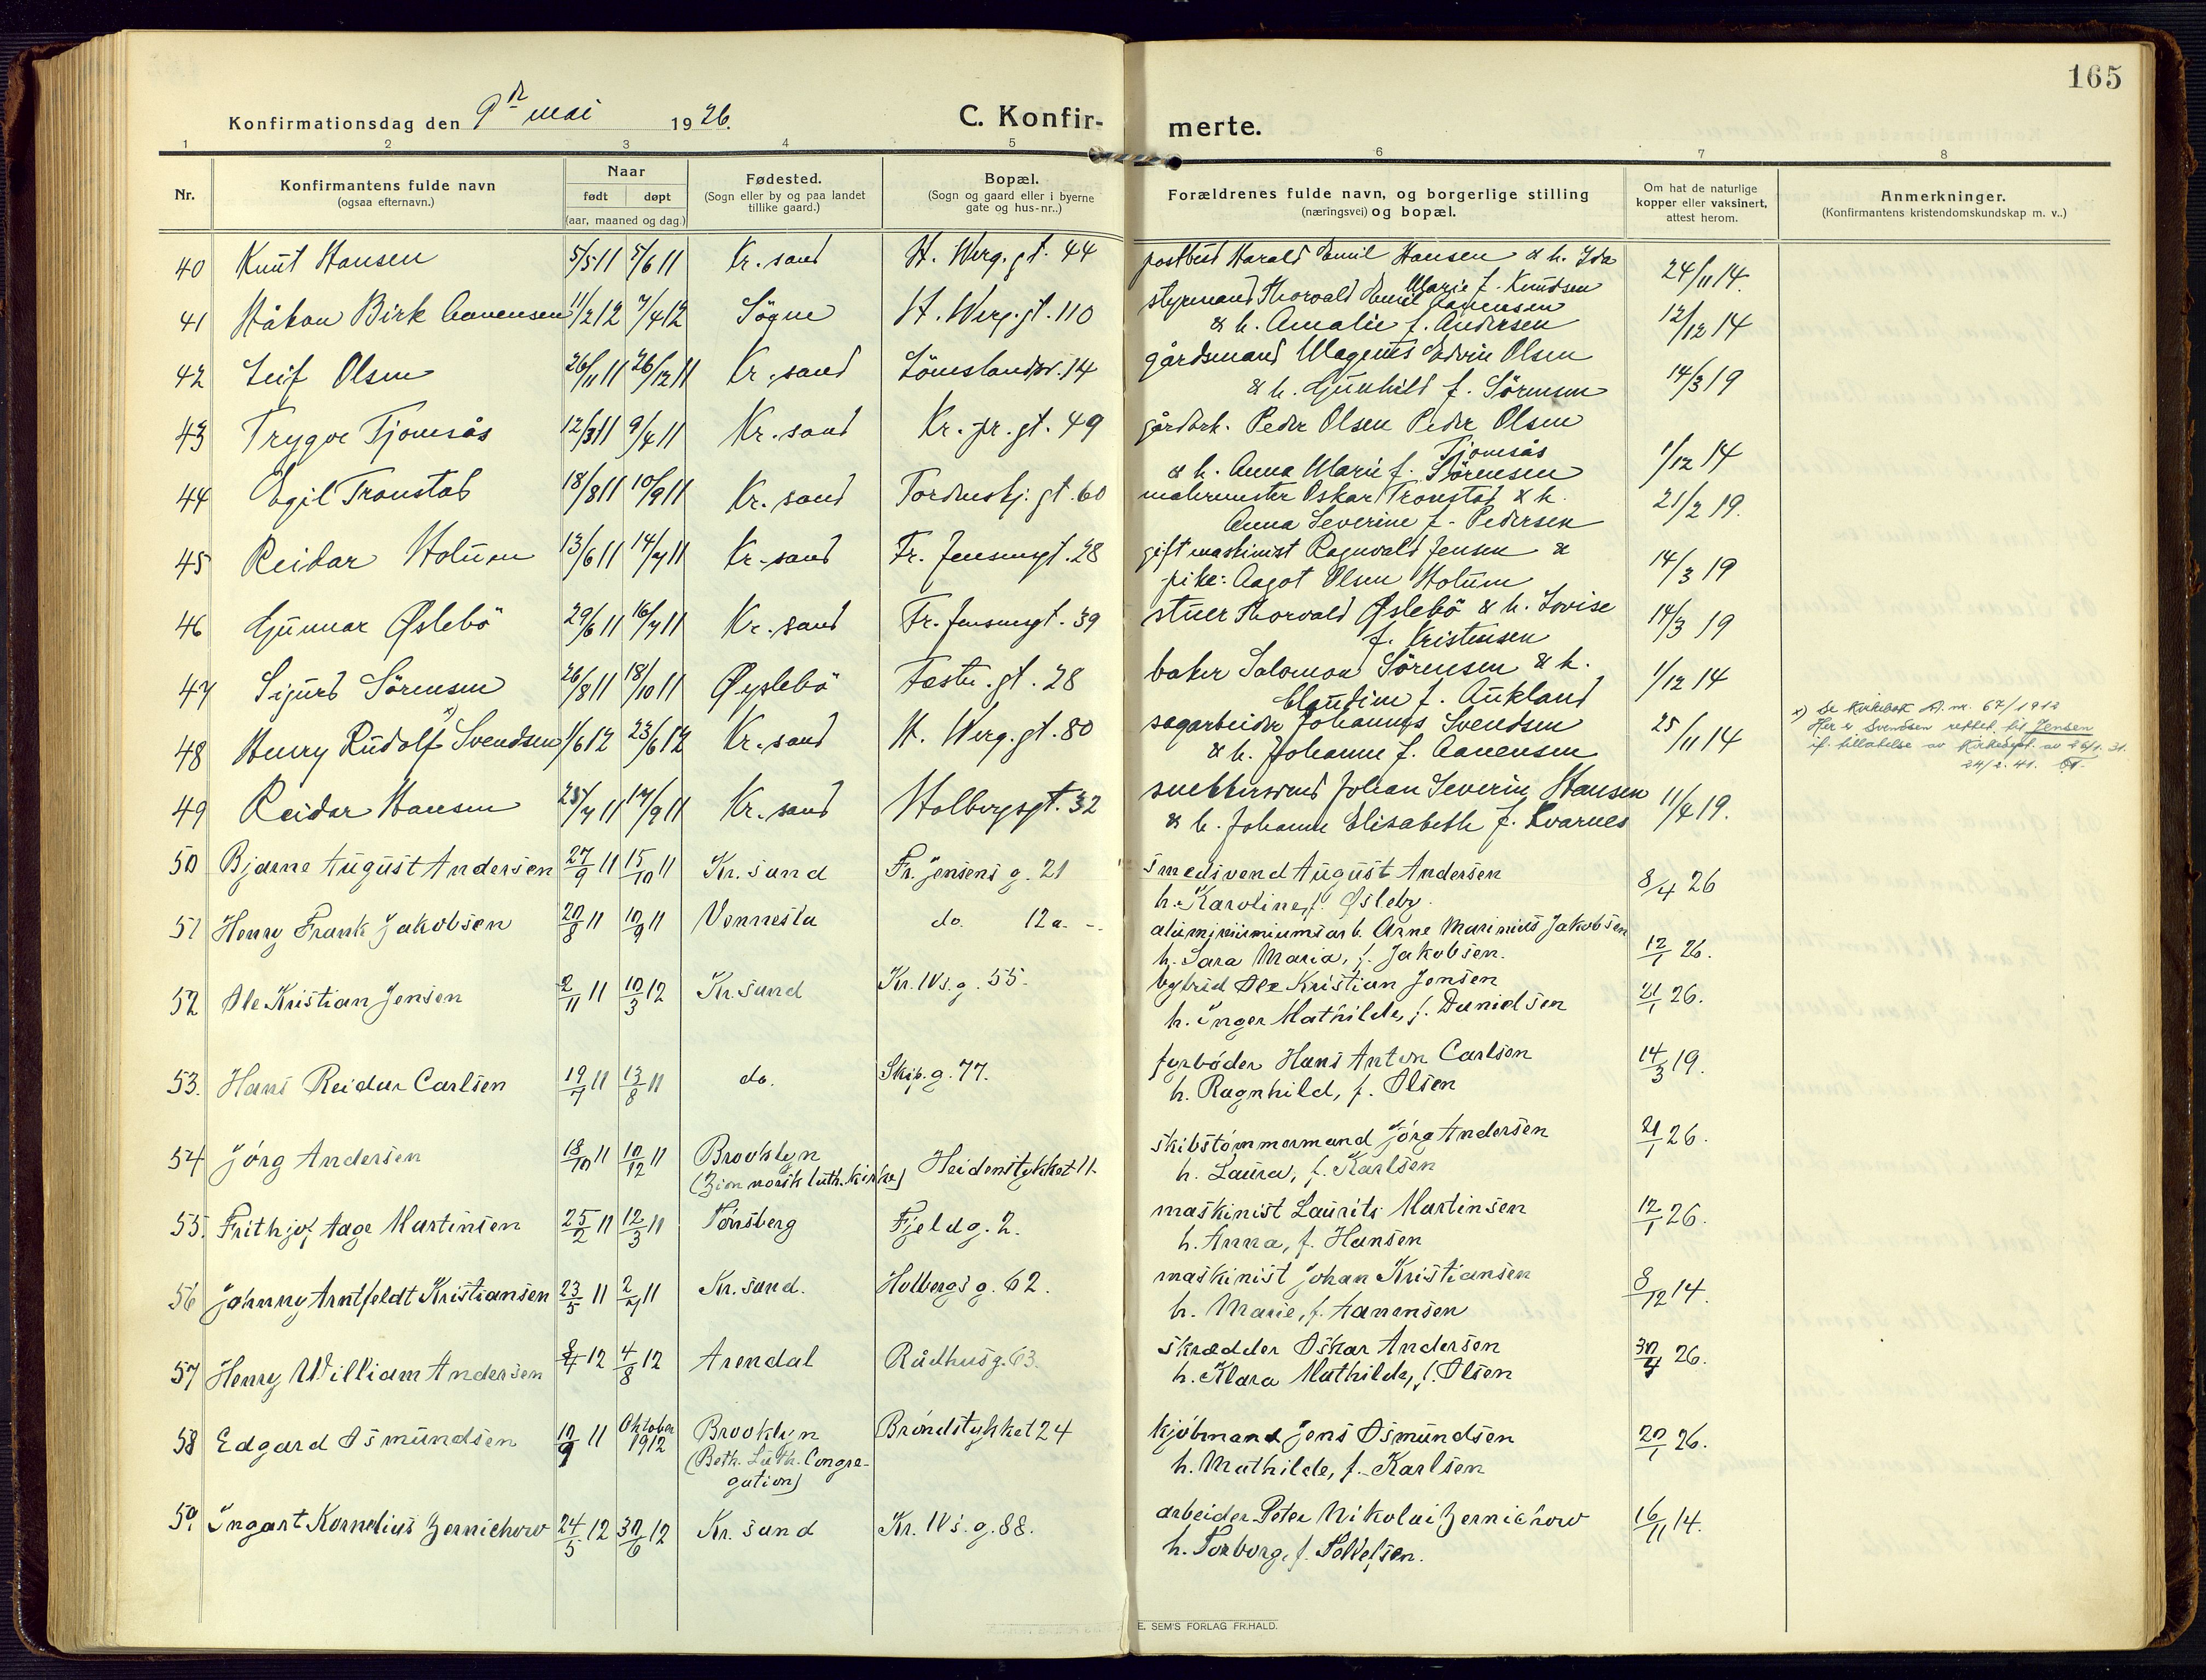 165
Konfirmationsdag den 9de mai 1926.
C. Konfirmerte.
1 2 3 4 5 6 7 8
Nr.
Konfirmantens fulde navn
(ogsaa efternavn.)
Naar
født døpt
(aar, maaned og dag.)
Fødested.
(Sogn eller by og paa landet
tillike gaard.)
Bopæl.
(Sogn og gaard eller i byerne
gate og hus-nr..)
Forældrenes fulde navn, og borgerlige stilling
(næringsvei) og bopæl.
Om hat de naturlige
kopper eller vaksinert,
attest herom.
Anmerkninger.
(Konfirmantens kristendomskundskap m. v..)
40 Knut Hansen 5/5 11 5/6 11 Kr.sand H. Werg. gt. 44 postbud Harald Emil Hansen & h. Ida 24/11 14.
Marie f. Knudsen
41 Håkon Birk Aanensen 11/2 12 7/4 12 Søgne H. Werg. gt. 110 styrmand Thorvald Emil Aanensen 12/12 14
& h. Amalie f. Andersen
42 Leif Olsen 26/11 11 26/12 11 Kr.sand Lömslandsv. 14 gårdsmand Magnus Edvin Olsen 14/3 19
& h. Gunhild f. Sörensen
43 Trygve Tjomsås 12/3 11 9/4 11 Kr.sand Kr. pr. gt. 49 gårdbr. Peder Olsen Peder Olsen
Tjomsås 1/12 14
& h. Anna Marie f. Sörensen
44 Egil Tronstad 18/8 11 10/9 11 Kr.sand Tordenskj. gt. 60 malermester Oskar Tronstad & h. 21/2 19.
Anna Severine f. Pedersen
45 Reidar Holum 13/6 11 14/7 11 Kr.sand Fr. Jensensgt. 28 gift maskinist Ragnvald Jensen & 14/3 19
pike: Aagot Olsen Holum
46 Gunnar Øslebö 29/6 11 16/7 11 Kr.sand Fr. Jensensgt. 39 stuer Thorvald Øslebö & h. Lovise 14/3 19
f. Kristensen
47 Sigurd Sörensen 26/8 11 18/10 11 Øyslebö Festn. gt. 28 baker Salomon Sörensen & h. 1/12 14
Claudine f. Aukland
48 Henry Rudolf x) Svendsen 1/6 12 23/6 12 Kr.sand H. Werg. gt. 80 sagarbeider Johannes Svendsen 25/11 14
& h. Johanne f. Aanensen
x) Se Kirkebok A. nr. 67/1912
Her er Svendsen rettet til Jensen
if. tillatelse av Kirkedept. av 26/1. 31.
24/2. 41.
49 Reidar Hansen 25/7 11 17/9 11 Kr.sand Holbergsgt. 32 snekkersvend Johan Severin Hansen 11/4 19.
& h. Johanne Elisabeth f. Kvarnes
50 Bjarne August Andersen 27/9 11 15/10 11 Kr.sand Fr. Jensens g. 21 smedsvend August Andersen 8/4 26
h. Karoline, f. Ösleby.
51 Henry Frank Jakobsen 20/8 11 10/9 11 Vennesla do. 12a. aluminiumsarb. Arne Marinius Jakobsen 12/1 26.
h. Sara Maria, f. Jakobsen.
52 Ole Kristian Jensen 2/11 11 10/3 12 Kr.sand Kr. IVs. g. 55. bybud Ole Kristian Jensen 21/1 26.
h. Inger Mathilde, f. Danielsen
53. Hans Reidar Carlsen 19/7 11 13/8 11 do. Skip. g. 77. fyrböder Hans Anton Carlsen 14/3 19.
h. Ragnhild, f. Olsen
54 Jörg Andersen 18/10 11 10/12 11 Brooklyn Heidenstykket 11. skibstömmermand Jörg Andersen 21/1 26.
(Zion norsk luth. kirke) h. Laura, f. Karlsen
55. Frithjof Aage Martinsen 25/2 11 12/3 11 Tönsberg Fjeldg. 2. maskinist Laurits Martinsen 12/1 26.
h. Anna, f. Hansen
56 Johnny Arntfeldt Kristiansen 23/5 11 2/7 11 Kr.sand. Holbergs g. 62. maskinist Johan Kristiansen 8/12 14.
h. Marie, f. Aanensen
57 Henry William Andersen 8/4 12 4/8 12 Arendal Rådhusg. 63. skrædder Oskar Andersen 30/4 26.
h. Klara Mathilde, f. Olsen
58 Edgard Osmundsen 10/9 11 Oktober 1912 Brooklyn Bröndstykket 24 kjöbmand Jens Osmundsen 20/1 26.
(Beth. Luth. Congre-
gation) h. Mathilde, f. Karlsen
59. Ingart Kornelius Zernichow 24/5 12 30/6 12 Kr.sand Kr. IVs. g. 88. arbeider Peter Nikolai Zernichow 16/11 14.
h. Torborg, f. Tellefsen.
E. SEM'S FORLAG FR.HALD.